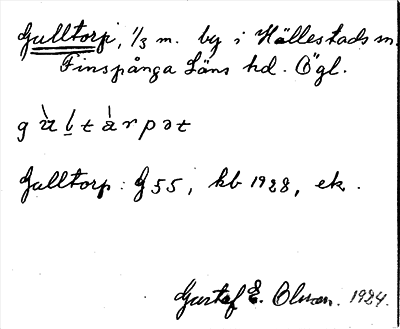 Gulltorp, 1/3 m. by i Hällestads sn.
Finspånga Läns hd. Ögl.
g ù l t à r p ə t
Gulltorp: G 55, kb 1928, ek.
Gustaf E. Olsson. 1924.